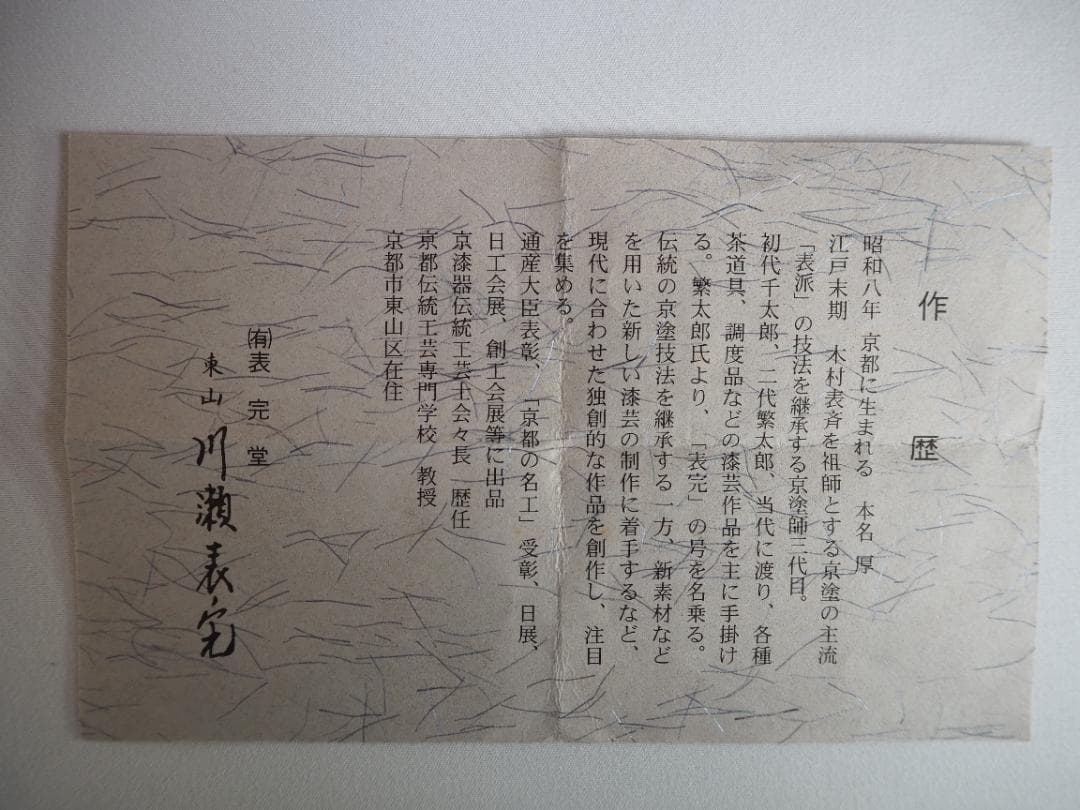 作歴
昭和八年 京都に生まれる 本名 厚
江戸末期 木村表斉を祖師とする京塗の主流
「表派」の技法を継承する京塗師三代目。
初代千太郎、二代繁太郎、当代に渡り、各種
茶道具、調度品などの漆芸作品を主に手掛け
る。繁太郎氏より、「表完」の号を名乗る。
伝統の京塗技法を継承する一方、新素材など
を用いた新しい漆芸の制作に着手するなど、
現代に合わせた独創的な作品を創作し、注目
を集める。
通産大臣表彰、「京都の名工」受彰、日展、
日工会展、創工会展等に出品
京漆器伝統工芸士会々長 歴任
京都伝統工芸専門学校 教授
京都市東山区在住
㈲表完堂
東山 川瀬表完